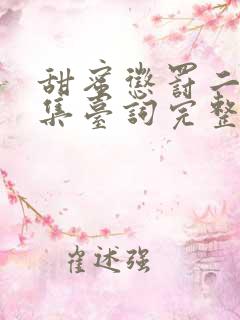 甜蜜懲罰二
集臺詞完整
崔述强